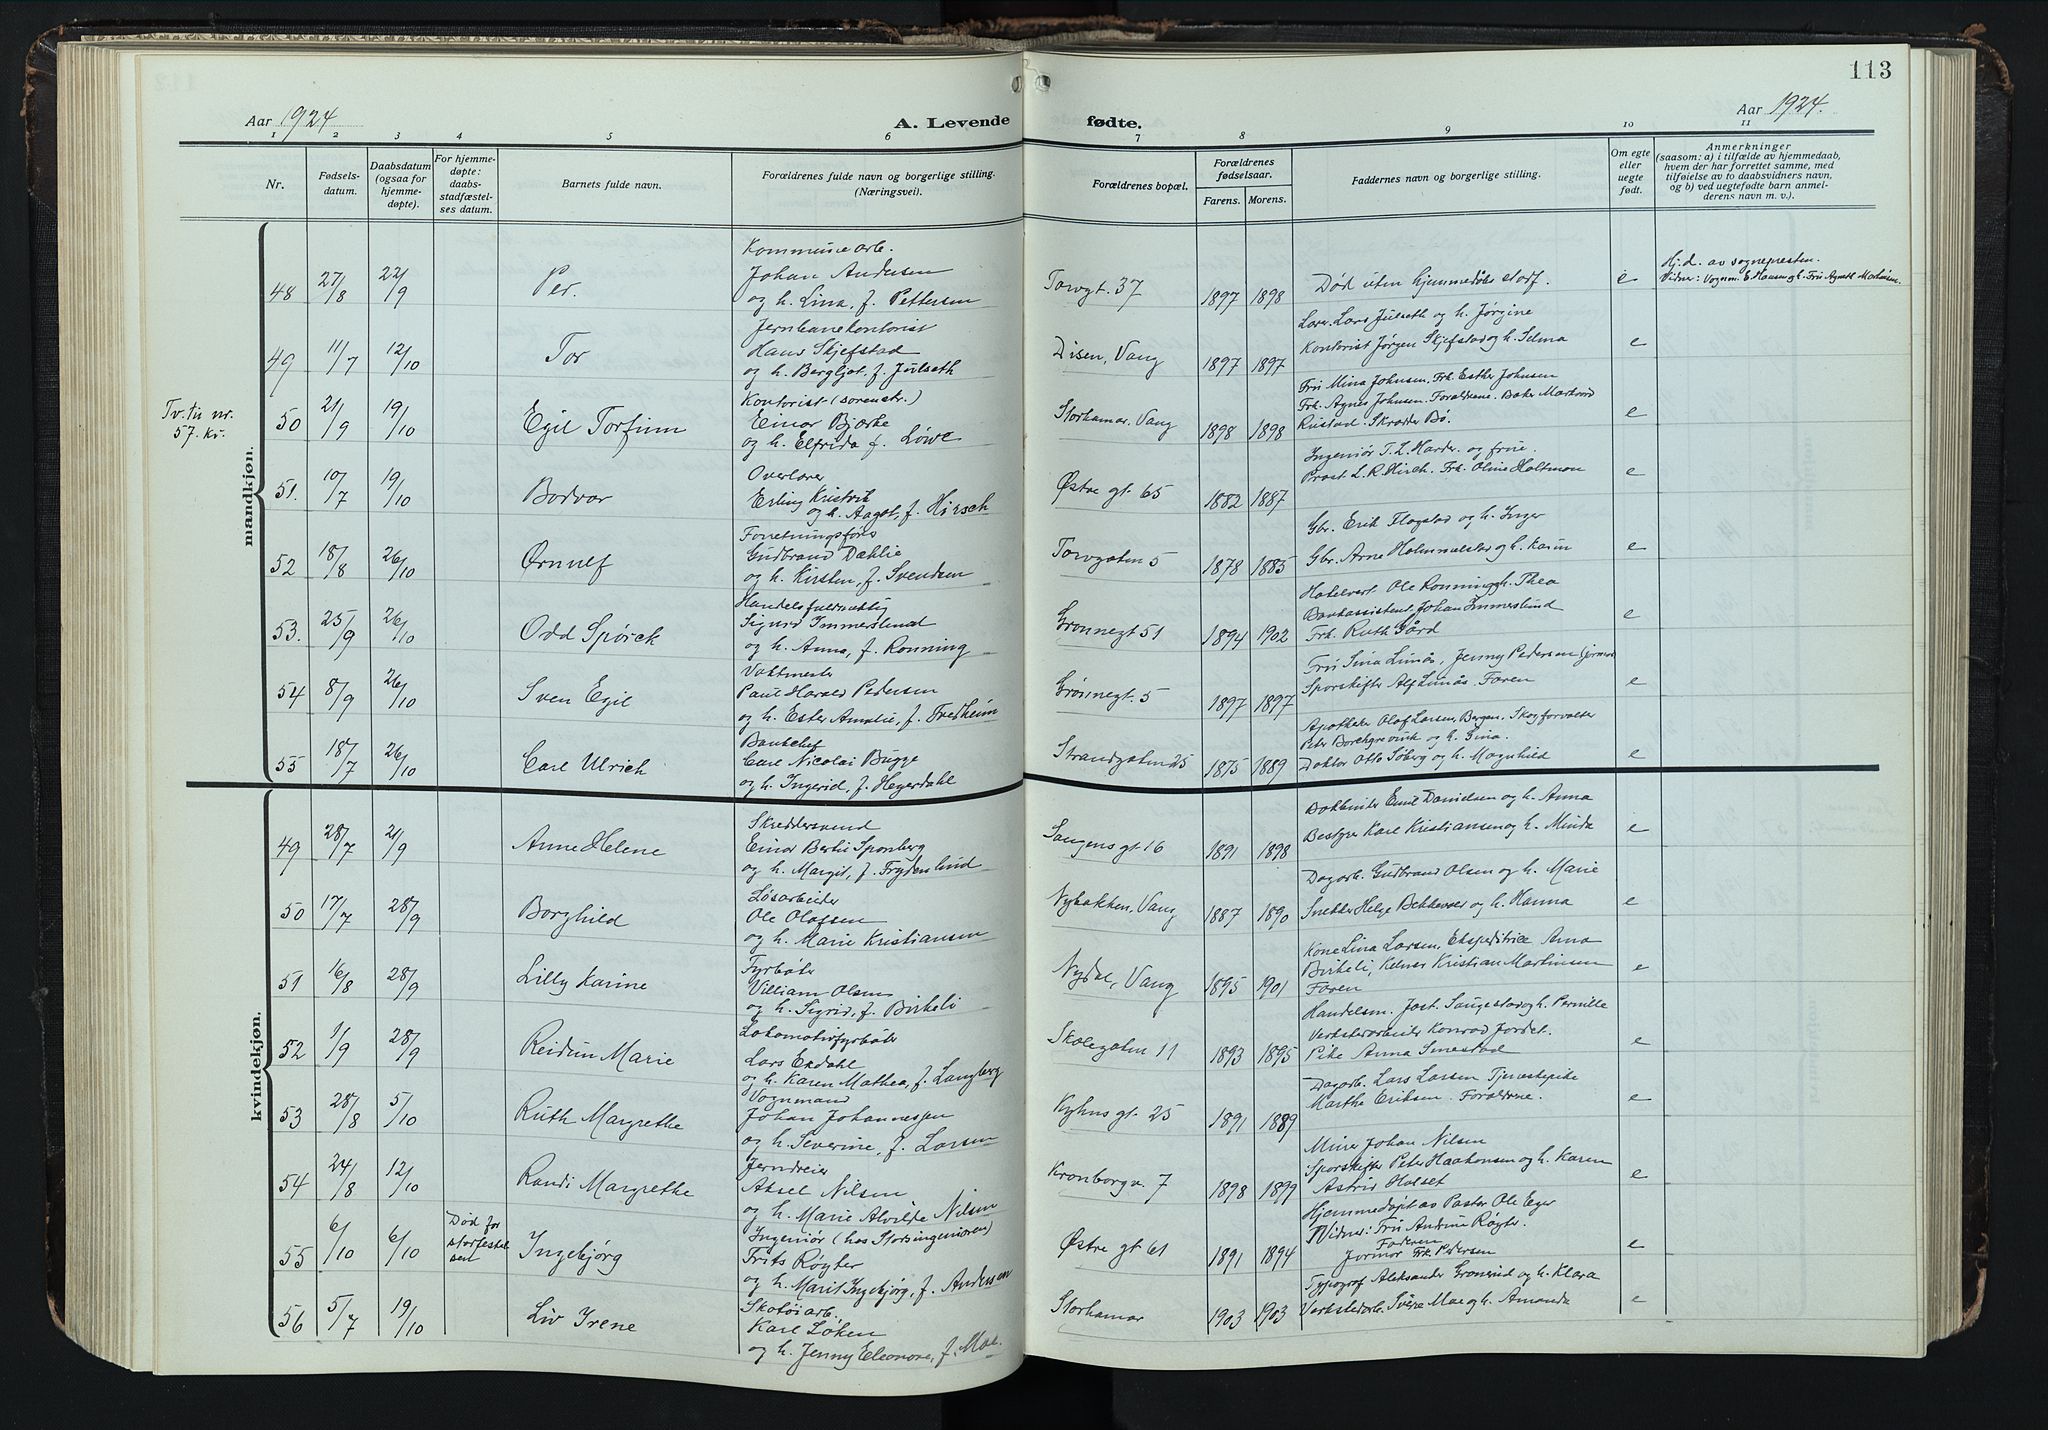 113
Aar 1924 A. Levende fødte. Aar 1924.
1 2 3 4 5 6 7 8 9 10 11
Nr.
Fødsels-
datum.
Daabsdatum
(ogsaa for
hjemme-
døpte).
For hjemme-
døpte:
daabs-
stadfæstel-
ses datum.
Barnets fulde navn.
Forældrenes fulde navn og borgerlige stilling.
(Næringsvei).
Forældrenes bopæl.
Forældrenes
fødselsaar.
Farens. Morens.
Faddernes navn og borgerlige stilling.
Om egte
eller
uegte
født.
Anmerkninger
(saasom: a) i tilfælde av hjemmedaab,
hvem der har forrettet samme, med
tilføielse av to daabsvidners navn,
og b) ved uegtefødte barn anmel-
derens navn m. v.).
mandkjøn.
48 27/8 22/9 Per.
Kommunearb.
Johan Andersen
og h. Lina, f. Pettersen
Torvgt. 37 1897 1898
Død uten hjemmedåbs stadf. e
Hj.d. av sognepresten.
Vidner: Vognm. E Hansen og h. Fru Agnete Mathisen.
49 11/7 12/10 Tor
Jernbanekontorist
Hans Skjefstad
og h. Bergljot, f. Julseth
Disen, Vang 1897 1897
Lærer Lars Julseth og h. Jørgine
Kontorist Jørgen Skjefstad og h. Selma e
Tv. til nr.
57. kv.
50 21/9 19/10 Egil Torfinn
Kontorist (sorenskr.)
Einar Bjørke
og h. Elfrida f. Løwe
Storhamar, Vang 1898 1898
Fru Mina Johnsen, Frk. Esther Johnsen
Frk. Agnes Johnsen. Forældrene. Baker Martinus
Rustad. Skrædder Bø. e
51. 10/7 19/10 Bodvar
Overlærer
Erling Kristvik
og h. Aagot, f. Hirsch
Østre gt. 65 1882 1887
Ingeniør T. L. Harder og frue.
Prost L. R. Hirsch. Frk. Oline Holtmon e
52 18/8 26/10 Ørnulf
Forretningsførs
Gudbrand Dæhlie
og h. Kirsten, f. Svendsen
Torvgaten 5 1878 1885
Gbr. Erik Flagstad og h. Inger
Gbr. Arne og h. Karen e
53. 25/9 26/10 Odd Spørck
Handelsfuldmættig
Sigurd Immerslund
og h. Anna, f. Rønning
Grønnegt 51 1894 1902
Hotelvert Ole Rønning og h. Thea
Bankassistent Johan Immerslund
Frk. Ruth Gård e
54 8/9 26/10 Sven Egil
Vaktmester
Paul Harald Pedersen
og h. Ester Amalie, f. Fredheim
Grønnegt. 5 1897 1897
Fru Sina Limås, Jenny Pedersen
Sporskifter Alf Limås. Faren e
55 18/7 26/10 Carl Ulrich
Bankchef
Carl Nicolai Bugge
og h. Ingerid, f. Heyerdahl
Strandgaten 25 1875 1889
Apotheker Olaf Larsen, Bergen. Skogforvalter
Peter Borchgrevink og h. Gina.
Doktor Otto Søberg og h. Magnhild e
kvindekjøn.
49 28/7 21/9 Anne Helene
Skreddersvend
Einar Bertil Sponberg
og h. Margit, f. Frydenlund
Sangens gt. 16 1891 1898
Bokbinder Emil Danielsen og h. Anna
Bestyrer Karl Kristiansen og h. Minda e
50 17/7 28/9 Borghild
Løsarbeider
Ole Olafsen
og h. Marie Kristiansen
Nybakken, Vang 1887 1890
Dagarb. Gudbrand Olsen og h. Marie
Snekker Helge Bekkevar og h. Hanna e
51 16/8 28/9 Lilly Karine
Fyrbøter
Villiam Olsen
og h. Sigrid, f. Birkeli
Nydal, Vang 1895 1901
Kone Lina Larsen, Ekspeditrice Anna
Birkeli, Kelner Kristian Martinsen
Faren e
52 1/9 28/9 Reidun Marie
Lokomotivfyrbøter
Lars Ekdahl
og h. Karen Mathea, f. Langberg
Skolegaten 11 1893 1895
Handelsm. Jost. Saugestad og h. Pernille
Verkstedarbeider Konrad Jordet.
Pike Anna Smestad e
53 28/8 5/10 Ruth Margrethe
Vognmand
Johan Johannessen
og h. Severine, f. Larsen
Kyhns gt. 25 1891 1889
Dagarb. Lars Larsen Tjenestepike
Marthe Eriksen. Forældrene. e
54 24/8 12/10 Randi Margrethe
Jerndreier
Aksel Nilsen
og h. Marie Alvilde Nilsen
Kronborgv. 7 1898 1899
Murer Johan Nilsen
Sporskifter Peter Haakonsen og h. Karen
Astrid Holset e
55 6/10 6/10
Død før
stadfestel
sen
Ingebjørg
Ingeniør (hos Stadsingeniøren)
Frits Røyter
og h. Marit Ingebjørg, f. Andersen
Østre gt. 61 1891 1894
Hjemmedøpt av Pastor Ole Eger
Vidner: Fru Andrine Røyter.
Faderen
Jormor Frk. Pedersen e
56 5/7 19/10 Liv Irene
Skotøiarb.
Karl Løken
og h. Jenny Eleonore, f. Moe.
Storhamar 1903 1903
Typograf Aleksander Grønerud og h. Klara
Verkstedarb. Sverre Moe og h. Amanda e